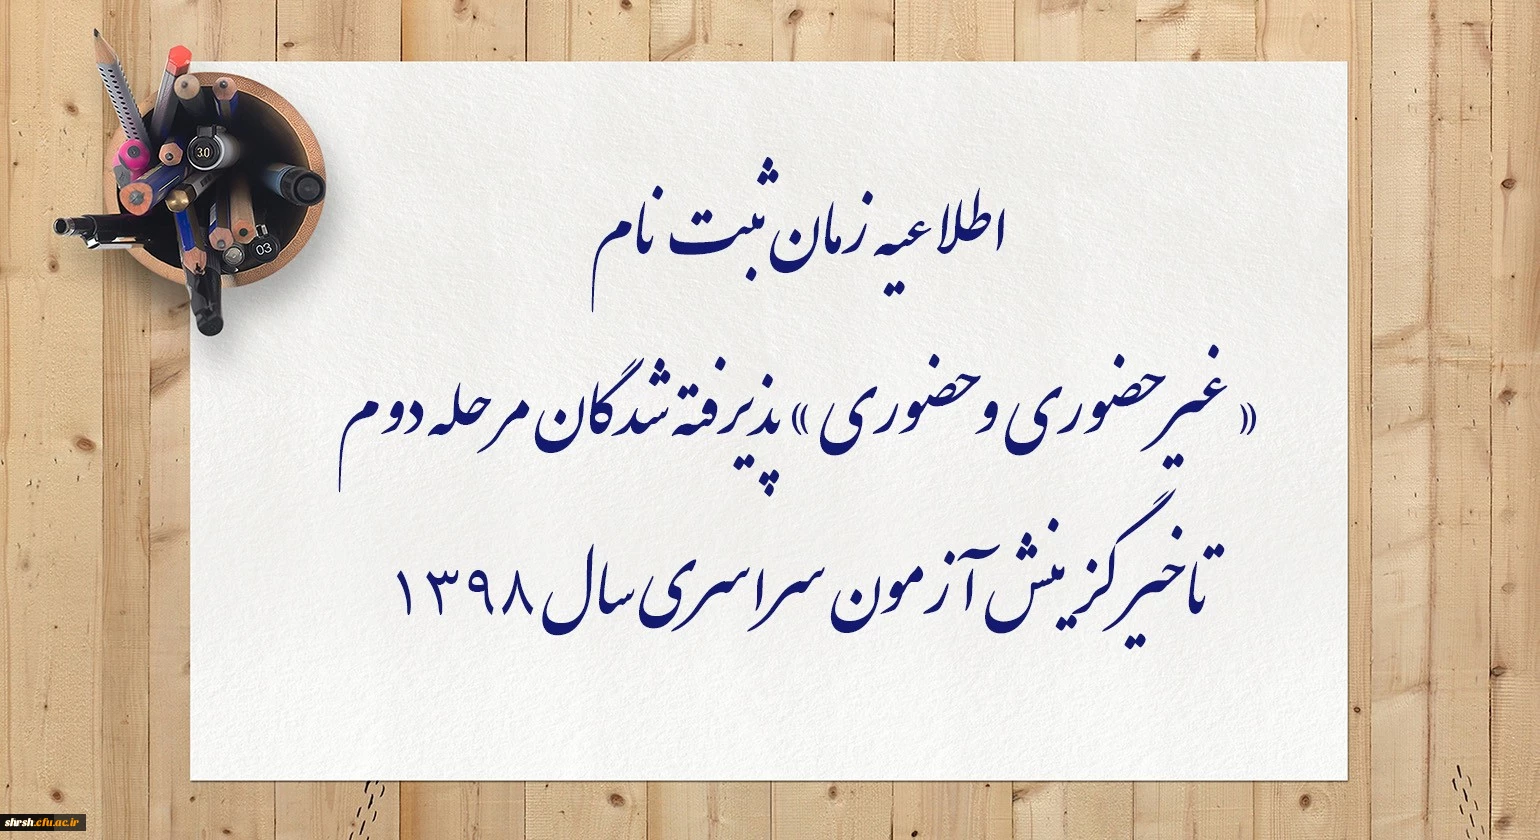 اطلاعیه زمان ثبت نام
« غیرحضوری و حضوری » پذیرفته شدگان مرحله دوم
تاخیر گزینش آزمون سراسری سال ۱۳۹۸
3.0
03
shrsh.cfu.ac.ir